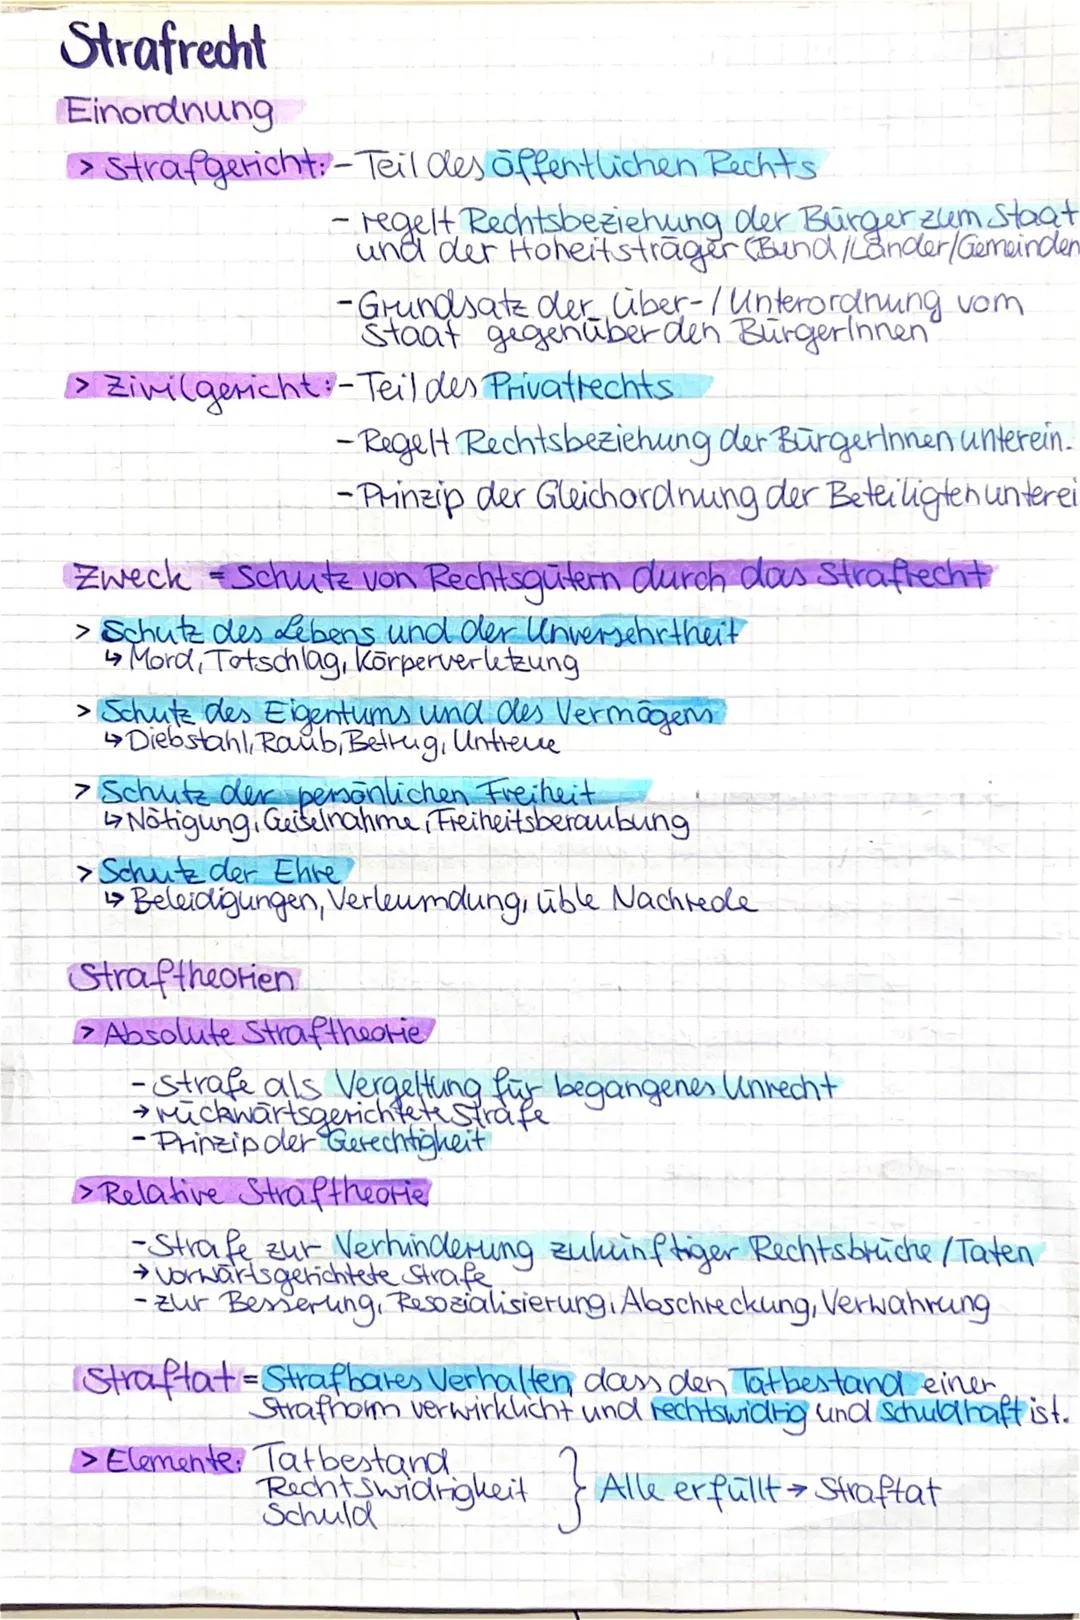 Strafrecht
Einordnung
> Strafgericht: - Teil des öffentlichen Rechts
- regelt Rechtsbeziehung der Bürger zum Staat
und der Hoheitsträger (Bund/Länder/Gemeinden
- Grundsatz der Über-/Unterordnung vom
Staat gegenüber den BürgerInnen
> Zivilgericht: - Teil des Privatrechts
- Regelt Rechtsbeziehung der BürgerInnen unterein.
- Prinzip der Gleichordnung der Beteiligten unterei
Zweck = Schutz von Rechtsgütern durch das Strafrecht
> Schutz des Lebens und der Unversehrtheit
↳ Mord, Totschlag, Körperverletzung
> Schutz des Eigentums und des Vermögens
↳ Diebstahl, Raub, Betrug, Untreue
> Schutz der persönlichen Freiheit
↳ Nötigung, Geiselnahme, Freiheitsberaubung
> Schutz der Ehre
↳ Beleidigungen, Verleumdung, üble Nachrede
Straftheorien
> Absolute Straftheorie
- Strafe als Vergeltung für begangenes Unrecht
→ rückwärtsgerichtete Strafe
- Prinzip der Gerechtigkeit
> Relative Straftheorie
- Strafe zur Verhinderung zukünftiger Rechtsbrüche / Taten
→ vorwärtsgerichtete Strafe
- zur Besserung, Resozialisierung, Abschreckung, Verwahrung
Straftat = Strafbares Verhalten, dass den Tatbestand einer
Strafnorm verwirklicht und rechtswidrig und schuldhaft ist.
> Elemente: Tatbestand
Rechtswidrigkeit } Alle erfüllt → Straftat
Schuld